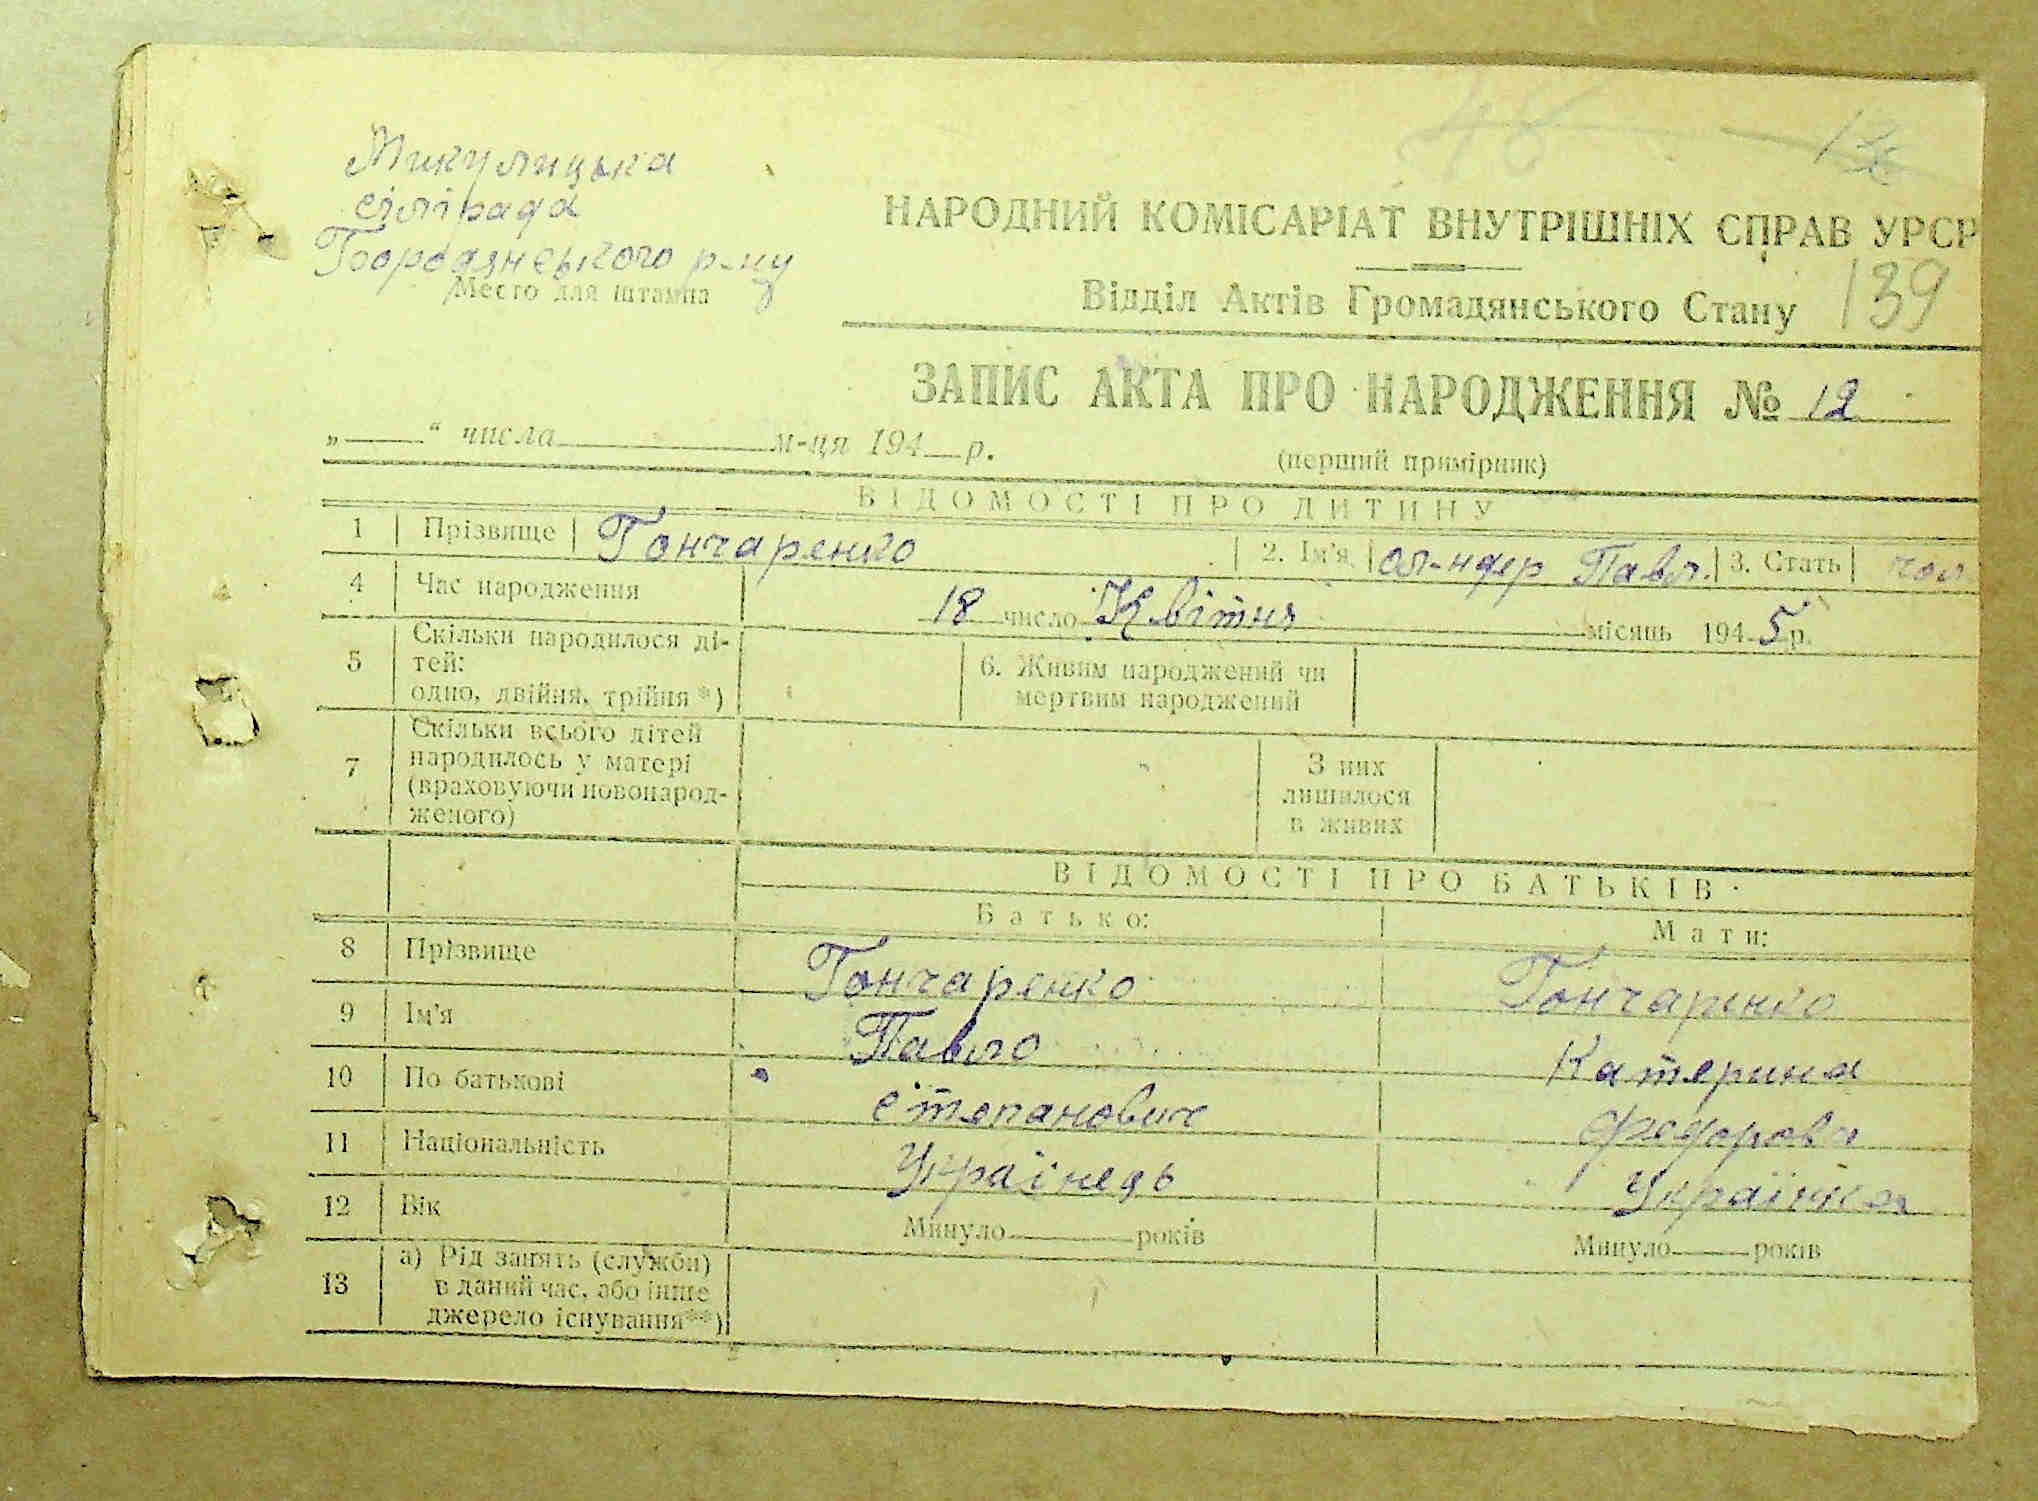 Микулицька
сілірада
Бородянського р-ну
Место для штампа
НАРОДНИЙ КОМІСАРІАТ ВНУТРІШНІХ СПРАВ УРСР
Відділ Актів Громадянського Стану 139
ЗАПИС АКТА ПРО НАРОДЖЕННЯ № 12
„ “ числа м-ця 194 р.
(перший примірник)
ВІДОМОСТІ ПРО ДИТИНУ
1 Прізвище Гончаренко 2. Ім'я Ол-ндер Павл. 3. Стать чол
4 Час народження 18 число Квітня місяць 1945 р.
5 Скільки народилося ді-
тей:
одно, двійня, трійня *)
6. Живим народжений чи
мертвим народжений
7 Скільки всього дітей
народилось у матері
(враховуючи новонарод-
женого)
З них
лишилося
в живих
ВІДОМОСТІ ПРО БАТЬКІВ
Батько: Мати:
8 Прізвище Гончаренко Гончаренко
9 Ім'я Павло Катерина
10 По батькові Степанович Федоровн
11 Національність Українець Українка
12 Вік Минуло років Минуло років
13 а) Рід занять (служби)
в даний час, або інше
джерело існування**)